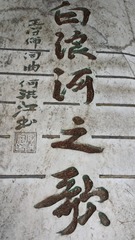 白浪河之歌
王召儒词曲何洪江书